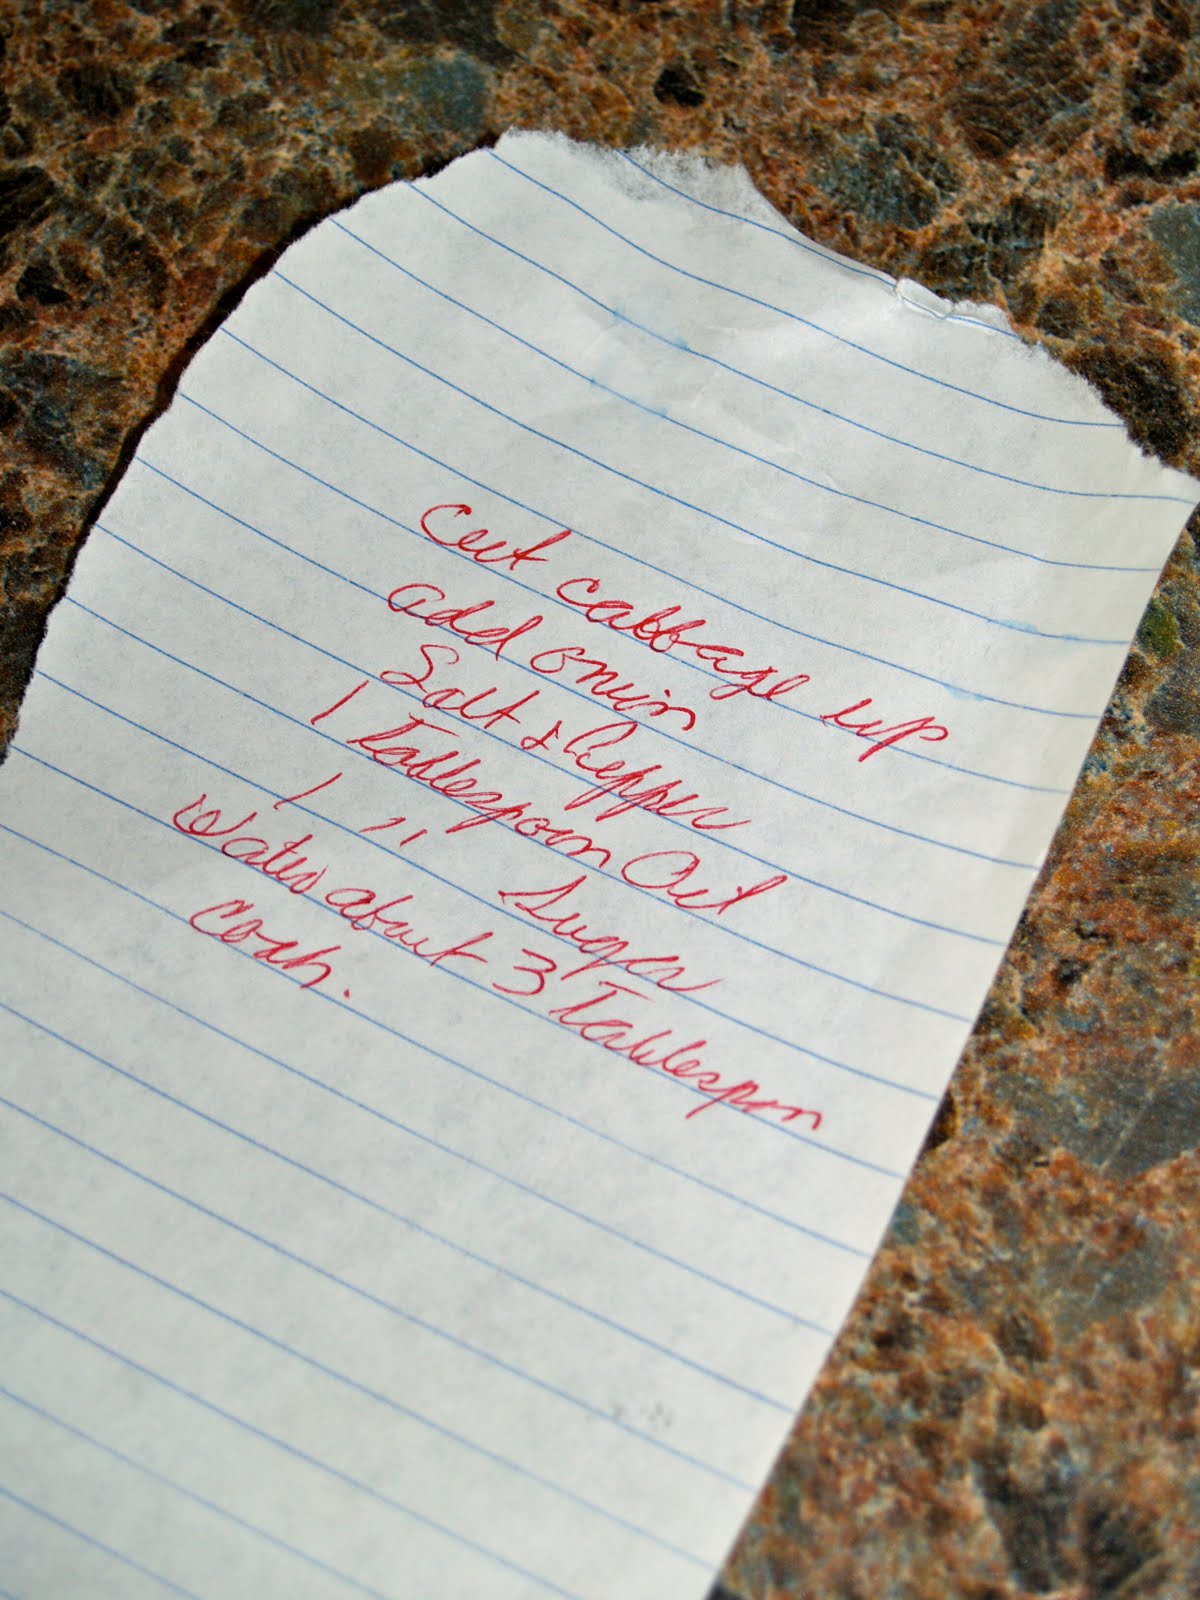 Cut cabbage up
add onion
Salt & Pepper
1 Tablespoon Oil
1 " Sugar
Water about 3 Tablespoon
Cook.